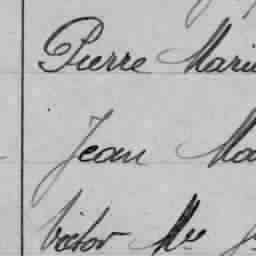 Pierre Marie
Jean Ma
Victor Mie